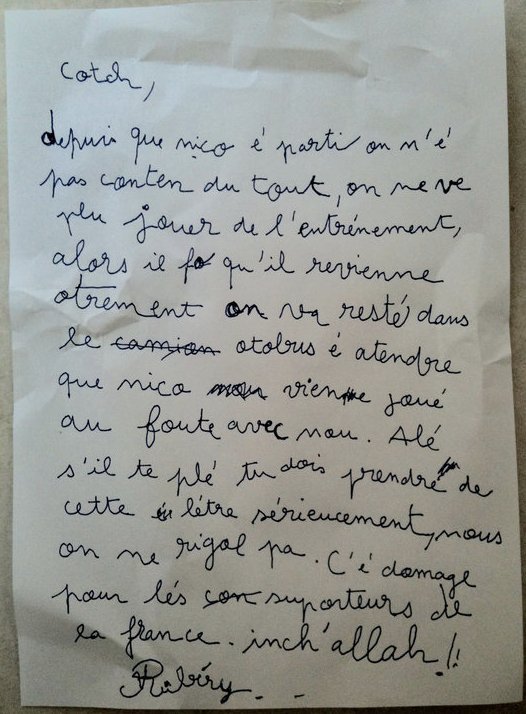 cotch,
depuis que nico é parti on n'é
pas conten du tout, on ne ve
plu jouer de l'entrénement,
alors il fo qu'il revienne
otrement on va resté dans
le camion otobus é atendre
que nico vienne joué
au foute avec nou. Alé
s'il te plé tu dois prendre de
cette létre sérieucement, nous
on ne rigol pa. C'é damage
pour lés con suporteurs de
la france. inch'allah !!
Ribéry - -